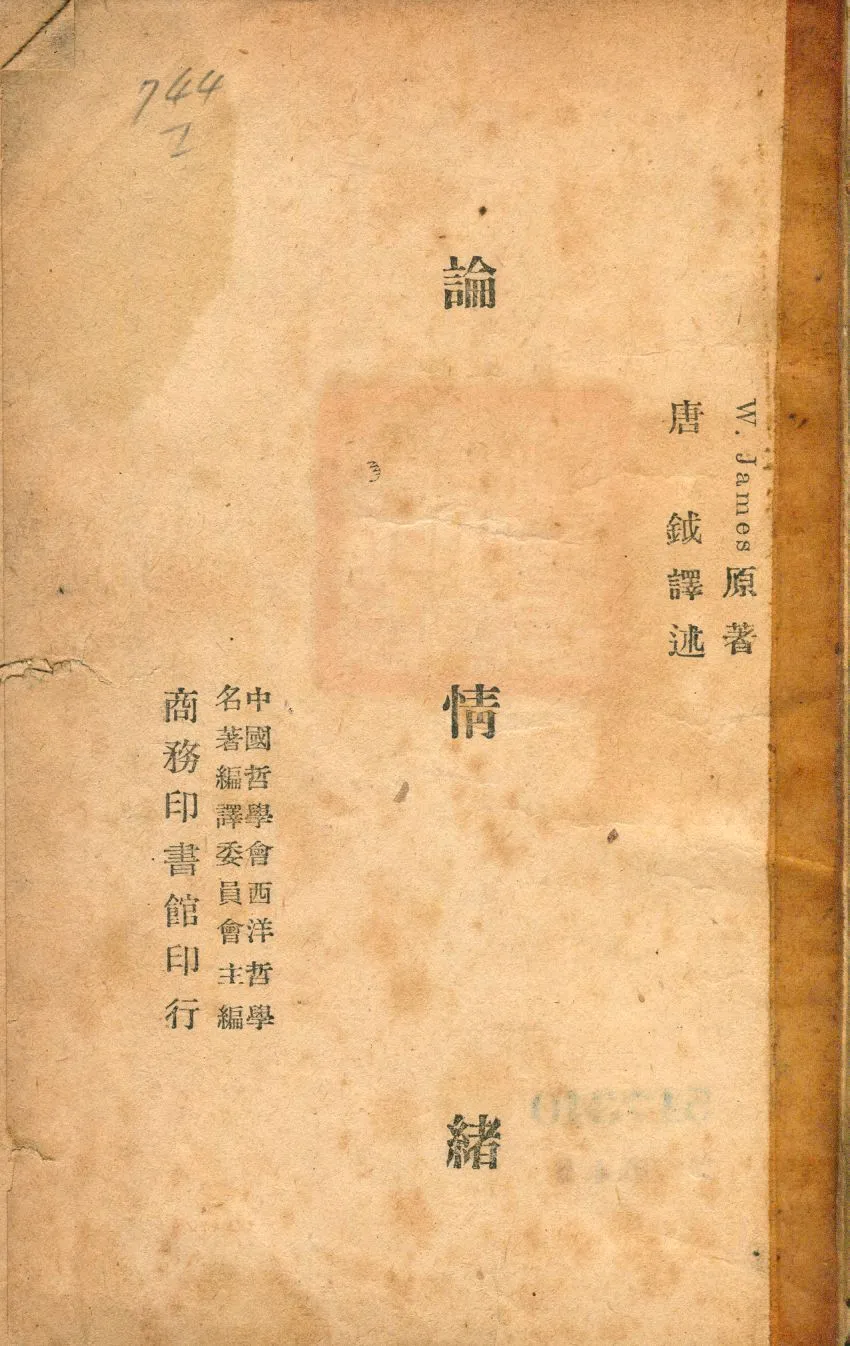 W. James原著
唐鉞譯述
論情緒
中國哲學會西洋哲學
名著編譯委員會主編
商務印書館印行
744